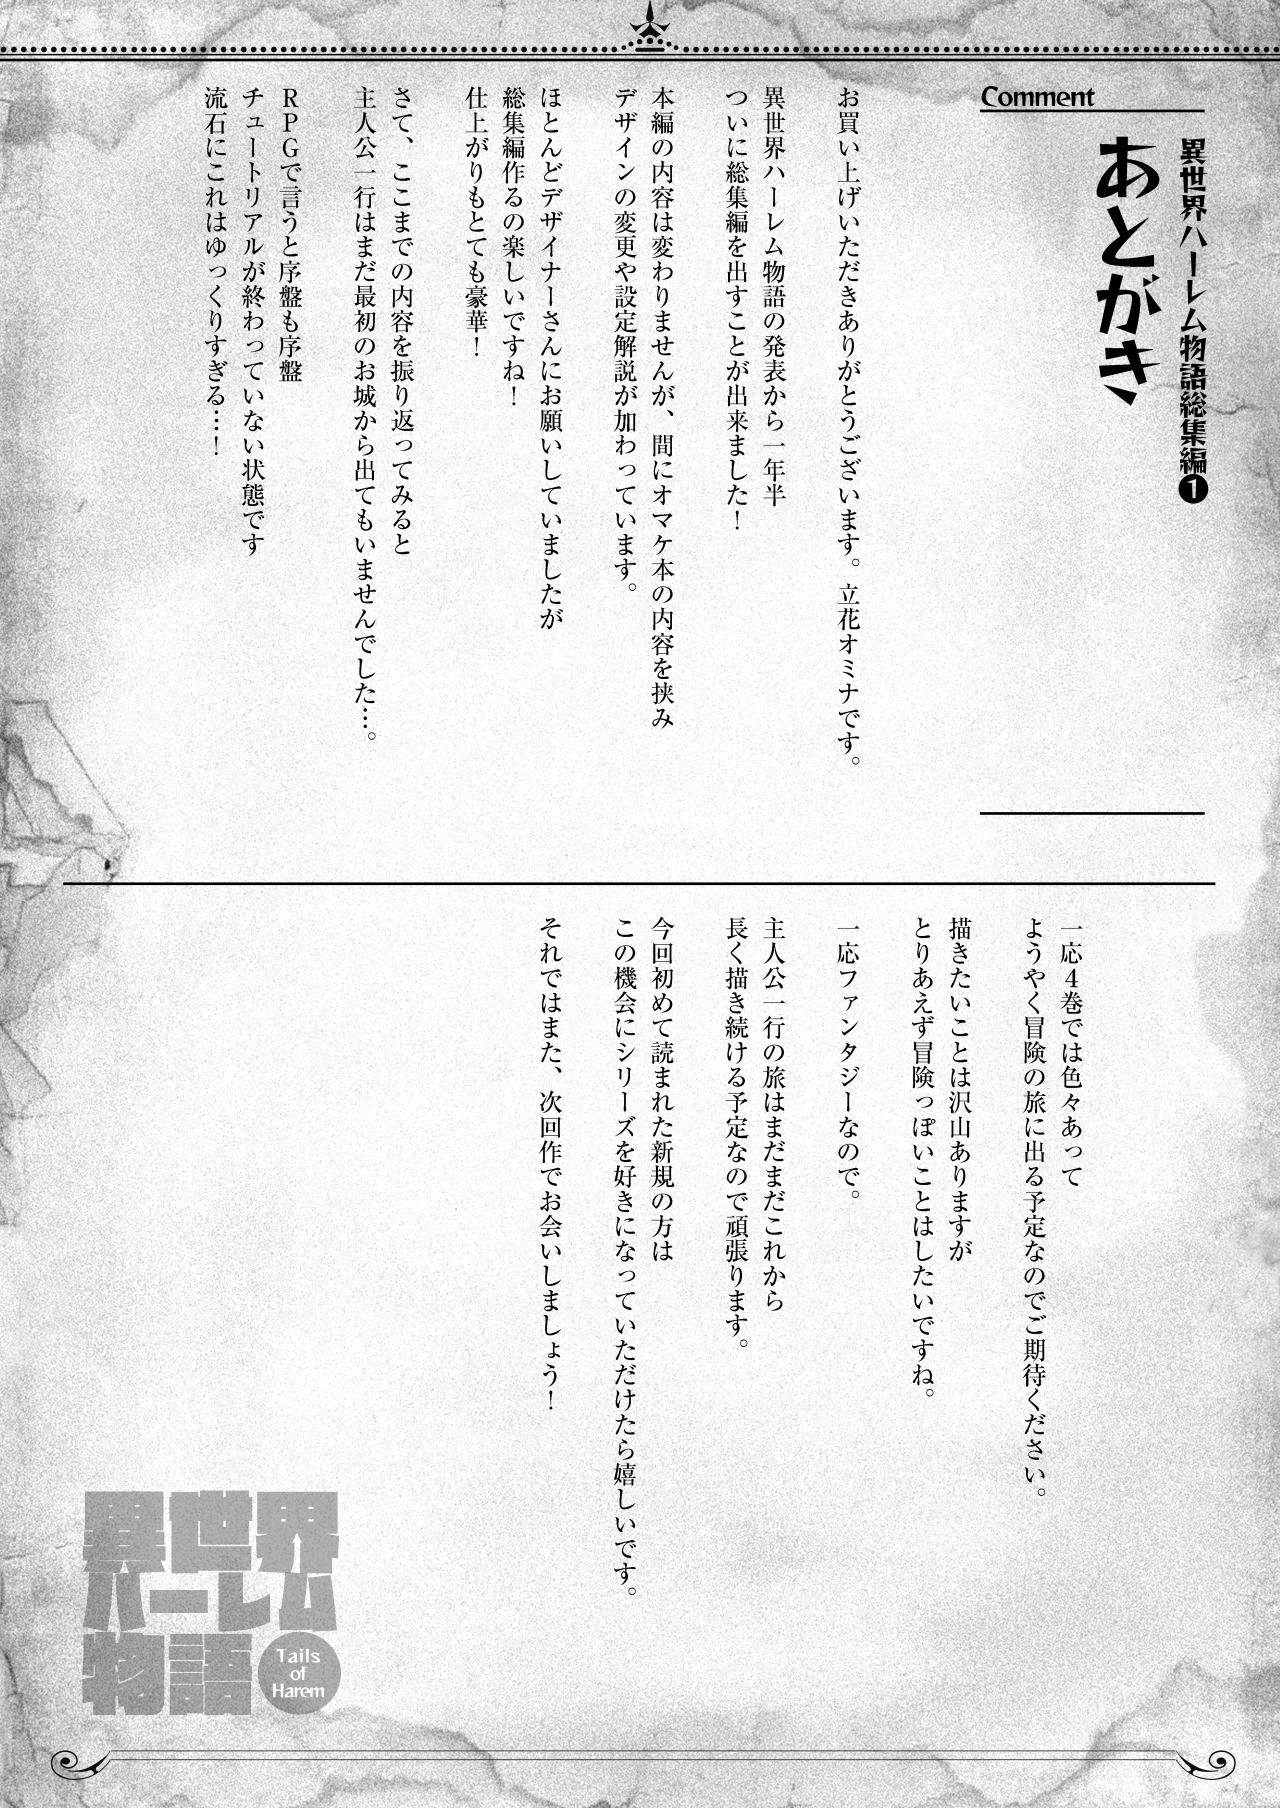 Comment
異世界ハーレム物語総集編❶
あとがき
お買い上げいただきありがとうございます。立花オミナです。
異世界ハーレム物語の発表から一年半
ついに総集編を出すことが出来ました！
本編の内容は変わりませんが、間にオマケ本の内容を挟み
デザインの変更や設定解説が加わっています。
ほとんどデザイナーさんにお願いしていましたが
総集編作るの楽しいですね！
仕上がりもとても豪華！
さて、ここまでの内容を振り返ってみると
主人公一行はまだ最初のお城から出てもいませんでした…。
ＲＰＧで言うと序盤も序盤
チュートリアルが終わっていない状態です
流石にこれはゆっくりすぎる…！
一応４巻では色々あって
ようやく冒険の旅に出る予定なのでご期待ください。
描きたいことは沢山ありますが
とりあえず冒険っぽいことはしたいですね。
一応ファンタジーなので。
主人公一行の旅はまだまだこれから
長く描き続ける予定なので頑張ります。
今回初めて読まれた新規の方は
この機会にシリーズを好きになっていただけたら嬉しいです。
それではまた、次回作でお会いしましょう！
異世界
ハーレム
物語
Tails
of
Harem